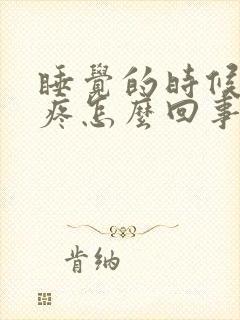 睡覺的時候
疼怎麼回事
肯纳